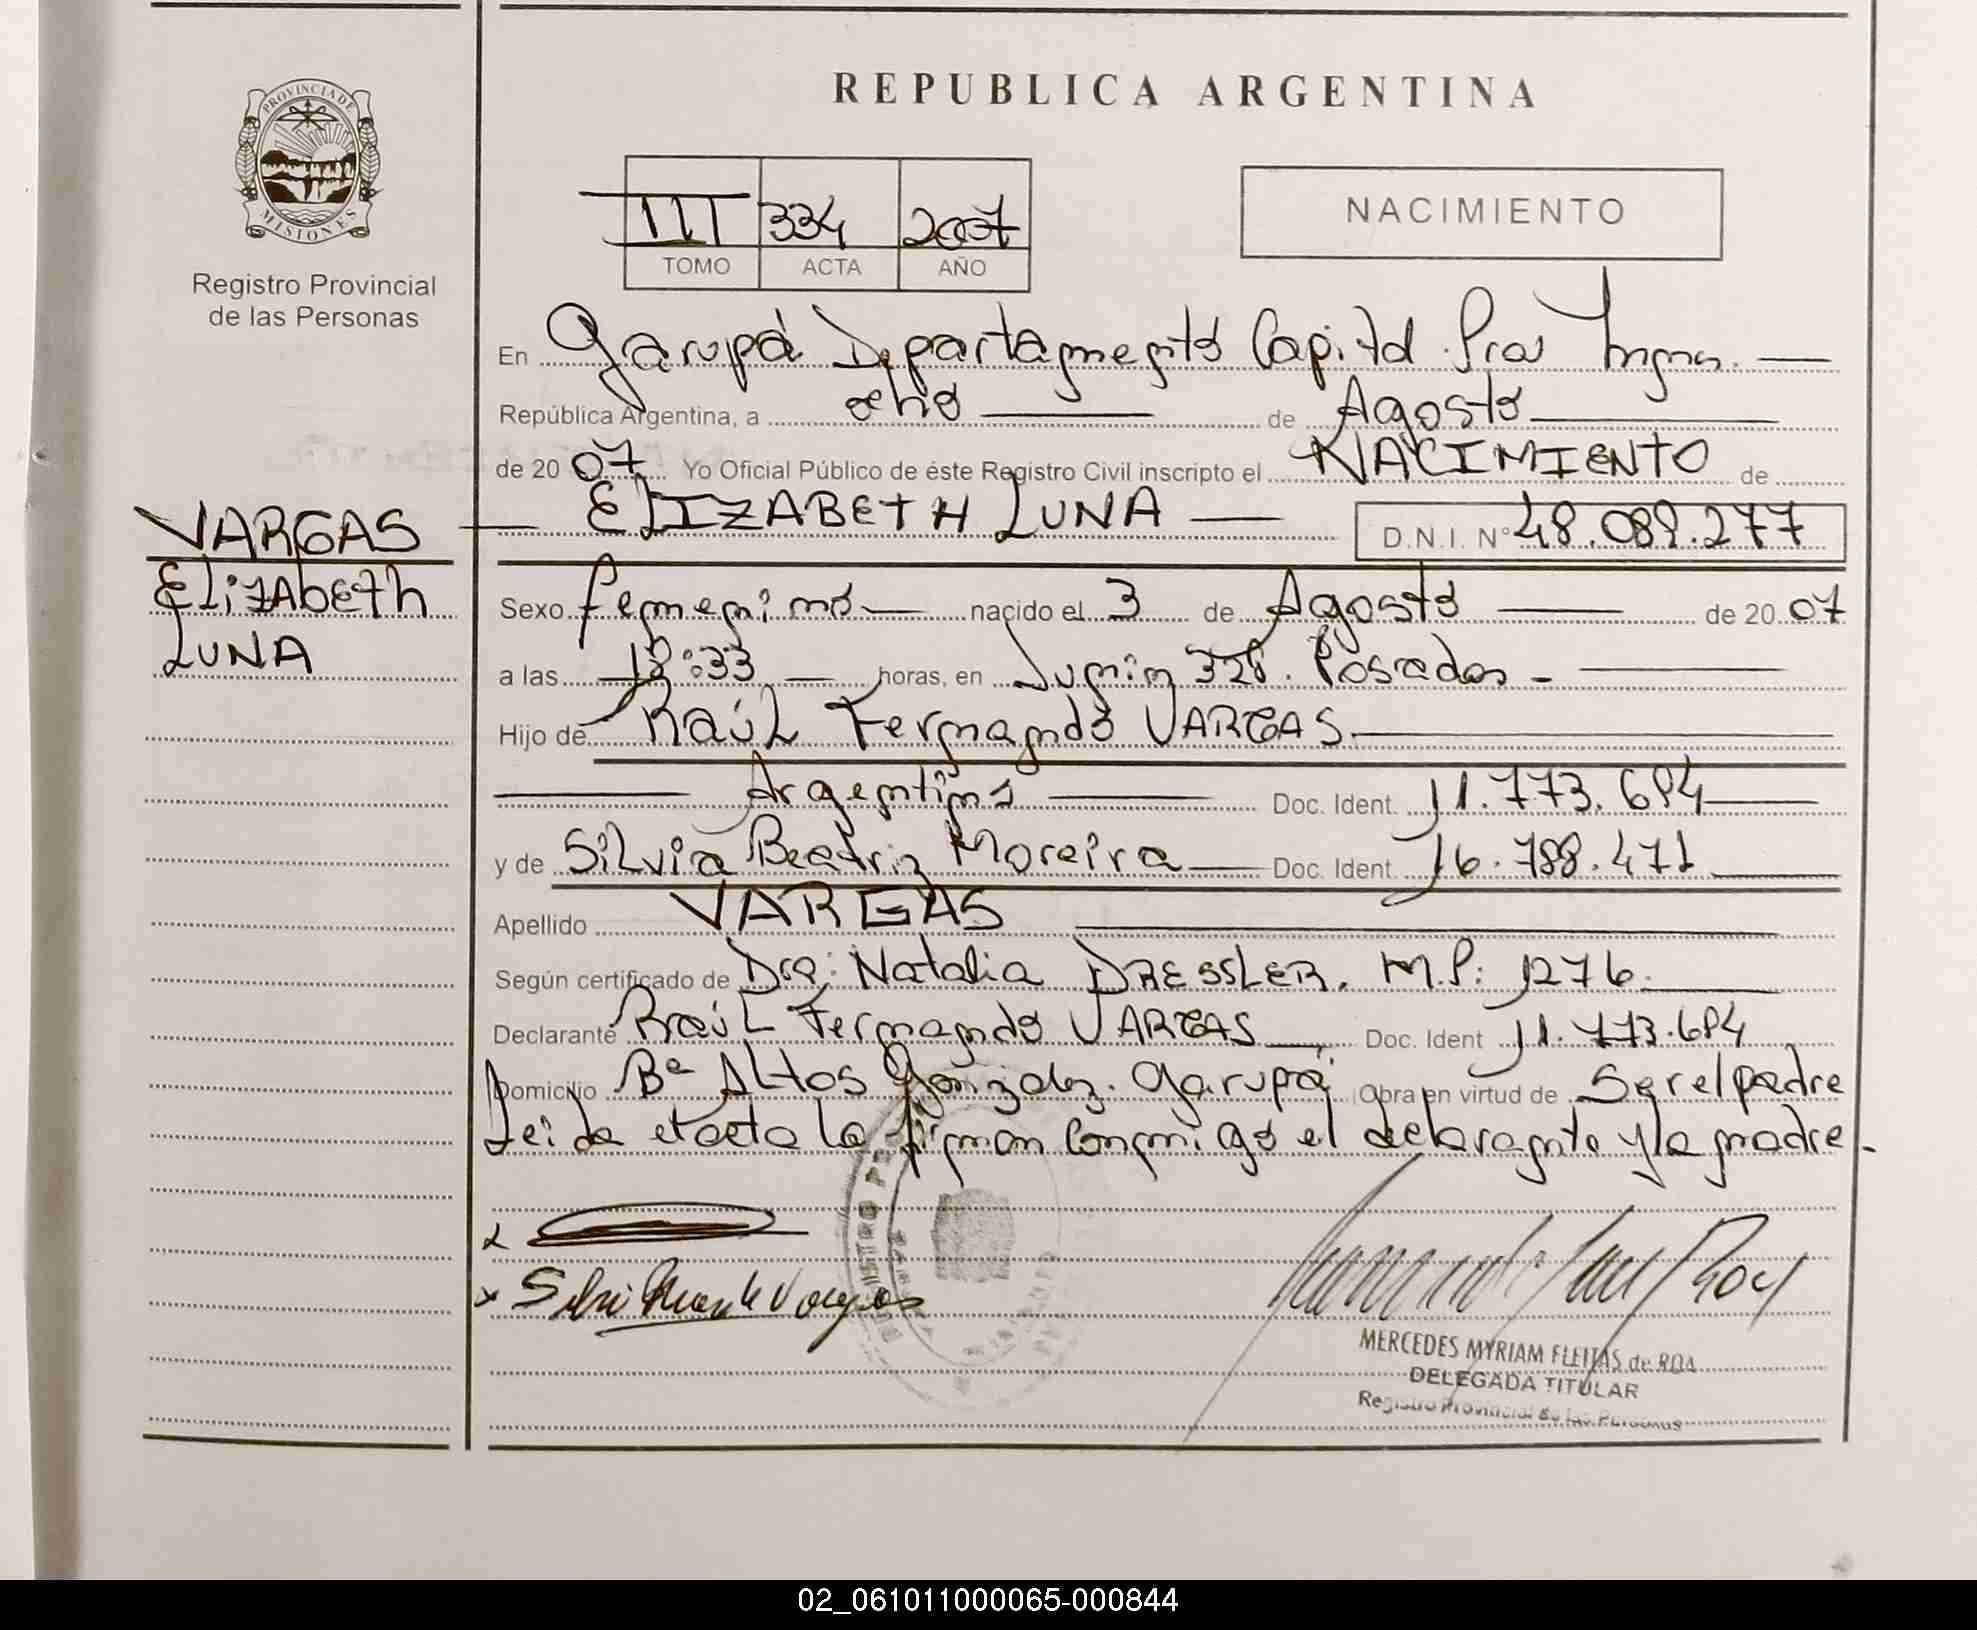 PROVINCIA DE
MISIONES
Registro Provincial
de las Personas
VARGAS
Elizabeth
LUNA
REPUBLICA ARGENTINA
III 334 2007
TOMO ACTA AÑO
NACIMIENTO
En Garupá Departamento Capital Pcia
República Argentina, a ocho de Agosto
de 20 07 Yo Oficial Público de éste Registro Civil inscripto el NACIMIENTO de
ELIZABETH LUNA D.N.I. Nº 48.089.277
Sexo femenino nacido el 3 de Agosto de 20 07
a las :33 horas, en Junin 328. Posadas -
Hijo de Raúl Fernando VARGAS.
Argentino Doc. Ident. 11.773.684
y de Silvia Beatriz Moreira Doc. Ident. 16.788.471
Apellido VARGAS
Según certificado de Dra: Natalia DRESSLER. M.P: 1276.
Declarante Raúl Fernando VARGAS Doc. Ident 11.773.684
Domicilio Bº Altos Gonzalez. Garupá Obra en virtud de Ser el padre
Leida el acta la firman conmigo el declarante y la madre.
x
x
MERCEDES MYRIAM FLEITAS de ROA
DELEGADA TITULAR
Registro Provincial de las Personas
02_061011000065-000844